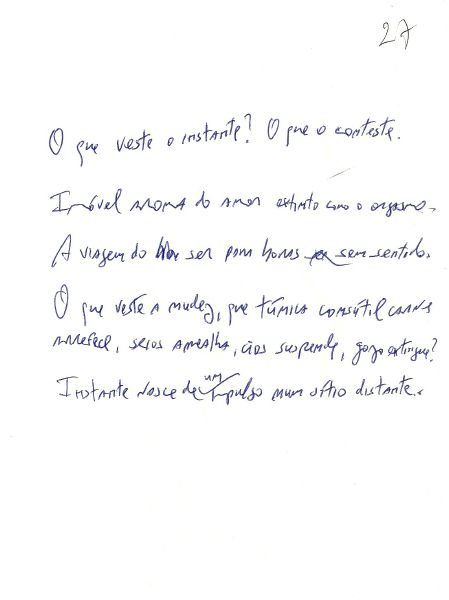 27
O que veste o instante? O que o conteste.
Imóvel aroma do amor extinto como o orgasmo.
A viagem do ser para horas sem sentido.
O que veste a mudez, que túnica consútil carne
arrefece, seios amealha, cios suspende, gozo extingue?
Instante nasce de um impulso num sítio distante.